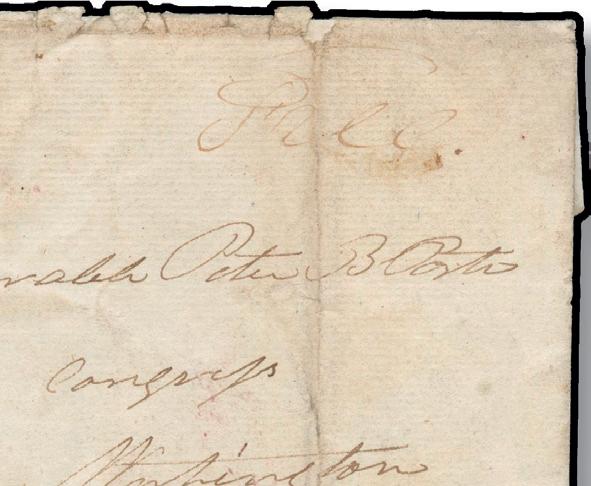 Free.
rable Peter B Porter
Congress
Washington